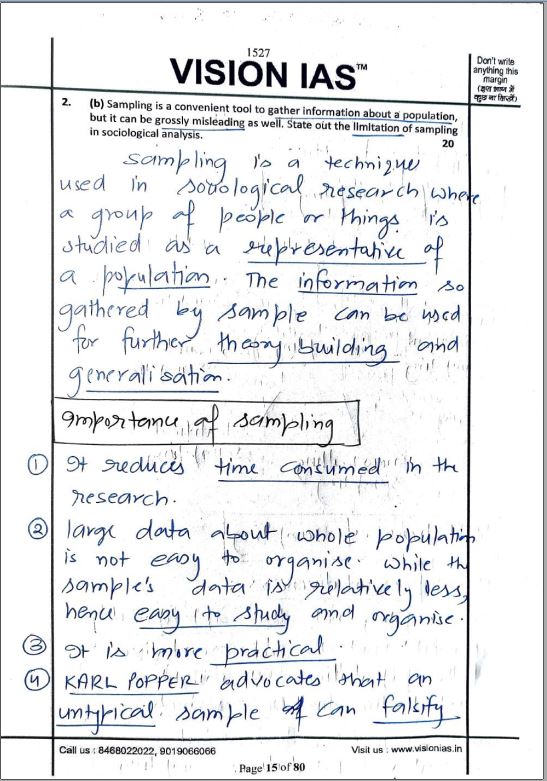 1527
VISION IAS™
Don't write
anything this
margin
(इस भाग में
कुछ ना लिखें)
2. (b) Sampling is a convenient tool to gather information about a population,
but it can be grossly misleading as well. State out the limitation of sampling
in sociological analysis.
20
Sampling is a technique
used in sociological research where
a group of people or things is
studied as a representative of
a population. The information so
gathered by sample can be used
for further theory building and
generalisation.
Importance of sampling
① It reduces time consumed in the
research.
② large data about whole population
is not easy to organise. While the
sample's data is relatively less,
hence easy to study and organise.
③ It is more practical.
④ KARL POPPER advocates that an
untypical sample can falsify
Call us : 8468022022, 9019066066
Visit us : www.visionias.in
Page 15 of 80